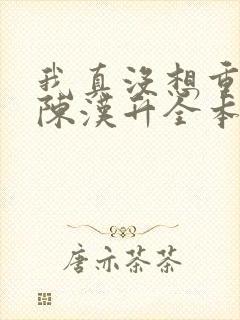 我真没想重
陈汉升全本
唐亦茶茶